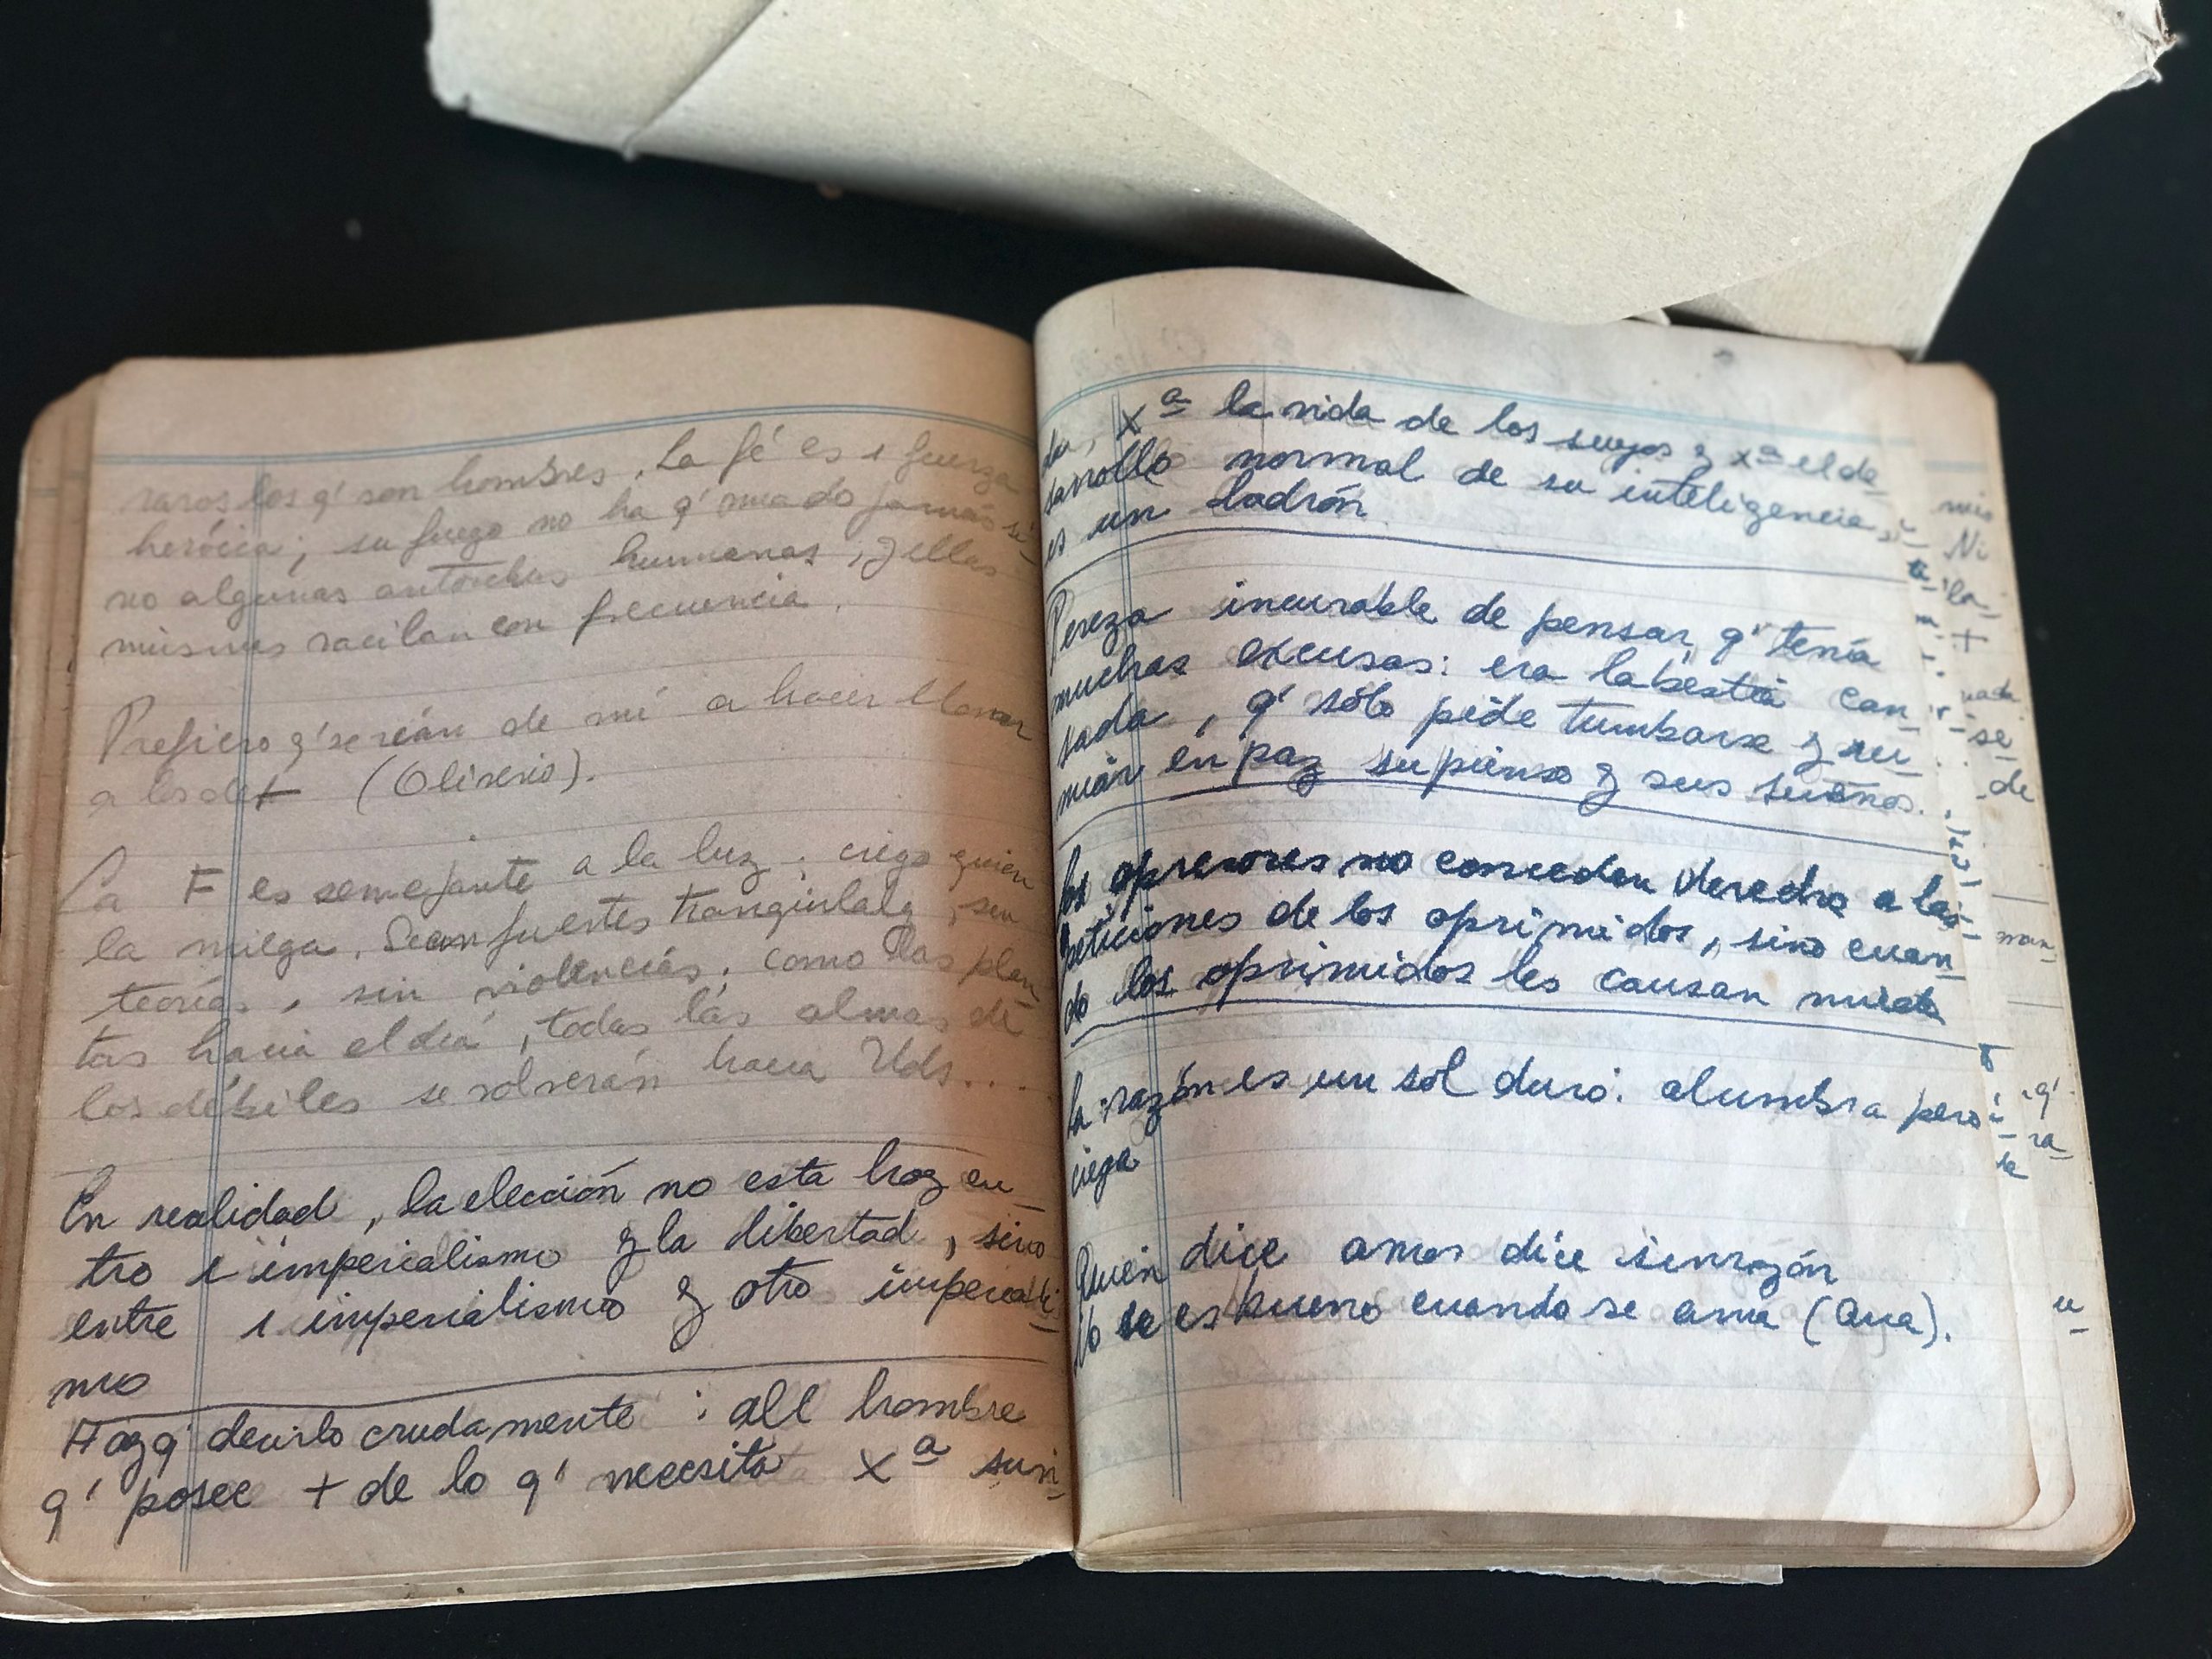 raros los q' son hombres. La fé es 1 fuerza
heróica; su fuego no ha q'mado jamás si
no algunas antorchas humanas, y ellas
mismas vacilan con frecuencia.
Prefiero q' se rián de mí a hacer llorar
a los de+ (Oliverio).
La F es semejante a la luz: ciego quien
la niega. Sean fuertes tranquila/, sin
teorías, sin violencias; como las plan
tas hacia el día, todas las almas de
los débiles se volverán hacia Uds...
En realidad, la elección no esta hoy en_
tro 1 imperialismo y la libertad, sino
entre 1 imperialismo y otro imperiali_
mo
Hay q' decirlo crudamente: all hombre
q' posee + de lo q' necesita xª su vi_
da, xª la vida de los suyos y xª el de_
sarrollo normal de su inteligencia,
es un ladrón
Pereza incurable de pensar, q' tenía
muchas excusas: era la bestia can_
sada, q' sólo pide tumbarse y ru_
miar en paz su pienso y sus sueños.
Los opresores no conceden derecho a las
peticiones de los oprimidos, sino cuan_
do los oprimidos les causan miedo
La razón es un sol duro: alumbra pero
ciega
Quien dice amor dice sinrazón
es bueno cuando se ama (Ana).
mio
Ni
la_
+
nada
se
de
man_
q'
ra_
u_